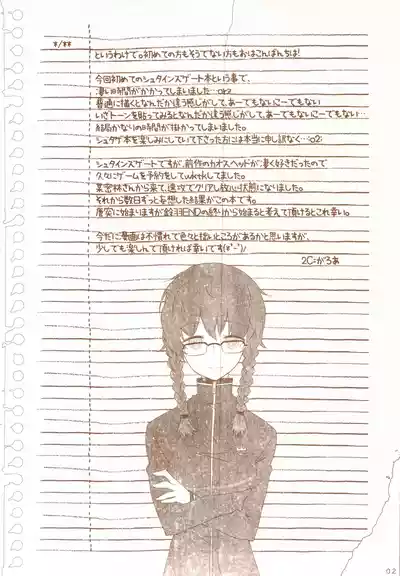 */**
というわけで。初めての方もそうでない方もおはこんばんちは!
今回初めてのシュタインズゲート本という事で、
凄い時間がかかってしまいました…orz
普通に描くとなんだか違う感じがして、あーでもないこーでもない
いざトーンを貼ってみるとなんだか違う感じがして、あーでもないこーでもない…
結局かなりの時間が掛かってしまいました。
シュタゲ本を楽しみにしていて下さった方には本当に申し訳なく…orz
シュタインズゲートですが、前作のカオスヘッドが凄く好きだったので
久々にゲームを予約をしてwktkしてました。
某密林さんから来て、速攻でクリアし放心状態になりました。
それから数日ずっと妄想した結果がこの本です。
唐突に始まりますが鈴羽ENDの終りから始まると考えて頂けるとこれ幸い。
今だに漫画は不慣れで色々と拙いところがあるかと思いますが、
少しでも楽しんで頂ければ幸いです(#^-^)ノ
2C=がろあ
02